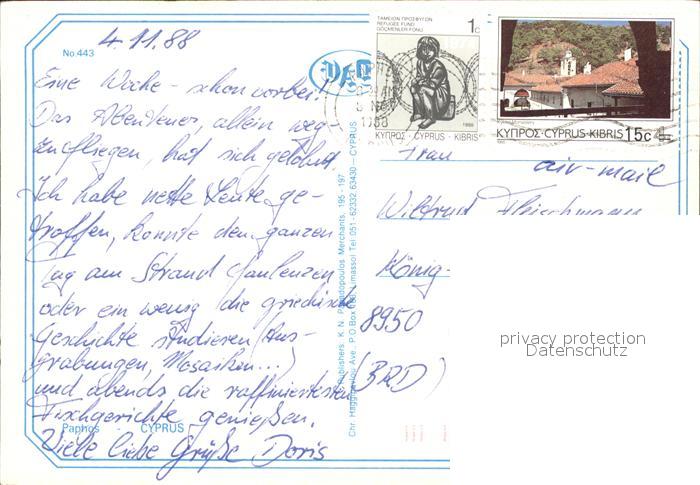 4.11.88
No. 443
Eine Woche - schon vorbei!
Das Abenteuer, allein weg-
zufliegen, hat sich gelohnt.
Ich habe nette Leute ge-
troffen, konnte den ganzen
Tag am Strand faulenzen
oder ein wenig die griechische
Geschichte studieren (Aus-
grabungen, Mosaiken...)
und abends die raffiniertesten
Fischgerichte genießen.
Paphos - CYPRUS
Viele liebe Grüße Doris
Publishers: K.N. Papadopoulos Merchants, 195-197
Chr. Haggipavlou Ave., P.O.Box Limassol Tel:051-62332, 63430-CYPRUS
ΤΑΜΕΙΟΝ ΠΡΟΣΦΥΓΩΝ
REFUGEE FUND
GÖÇMENLER FONU
1c
1988
ΚΥΠΡΟΣ·CYPRUS·KIBRIS
ΚΥΠΡΟΣ·CYPRUS·KIBRIS 15c
1988
Frau
air-mail
Wiltrud Fleischmann
König-
8950
(BRD)
privacy protection
Datenschutz